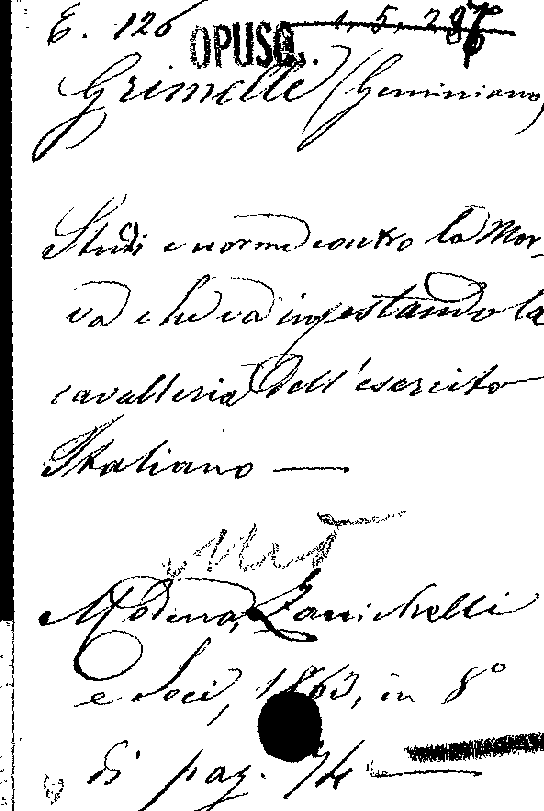 E. 126 OPUSC. 1, 5, 287
Grimelli (Geminiano)
Studi e norme contro la Mor-
va che va infestando la
cavalleria dell'esercito
Italiano —
Med
Modena, Zanichelli
e Soci, 1863, in 8°
di pag. 74